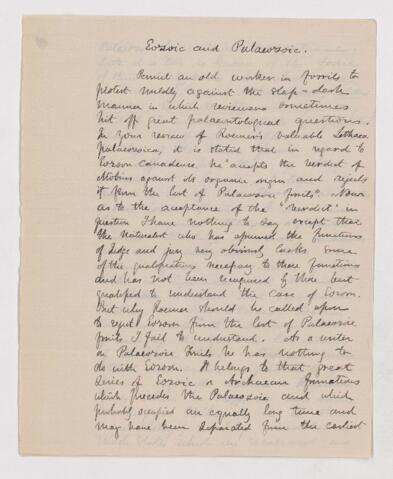 Eozoic and Palaeozoic.
Permit an old worker in fossils to
protest mildly against the slap-dash
manner in which reviewers sometimes
hit off great palaeontological questions.
In your review of Roemer's valuable Lethaea
palaeozoica, it is stated that in regard to
Eozoon Canadense, he "accepts the verdict of
Möbius against its organic origin and rejects
it from the list of Palaeozoic fossils". Now
as to the acceptance of the "verdict" in
question I have nothing to say except that
the Naturalist who has assumed the functions
of Judge and jury very obviously lacks some
of the qualifications necessary to these functions
and has not been recognised by those best
qualified to understand the case of Eozoon.
But why Roemer should be called upon
to reject Eozoon from the list of Palaeozoic
fossils I fail to understand. As a writer
on Palaeozoic fossils he has nothing to
do with Eozoon. It belongs to that great
series of Eozoic or Archaean formations
which precedes the Palaeozoic and which
probably occupied an equally long time and
may have been separated from the earliest